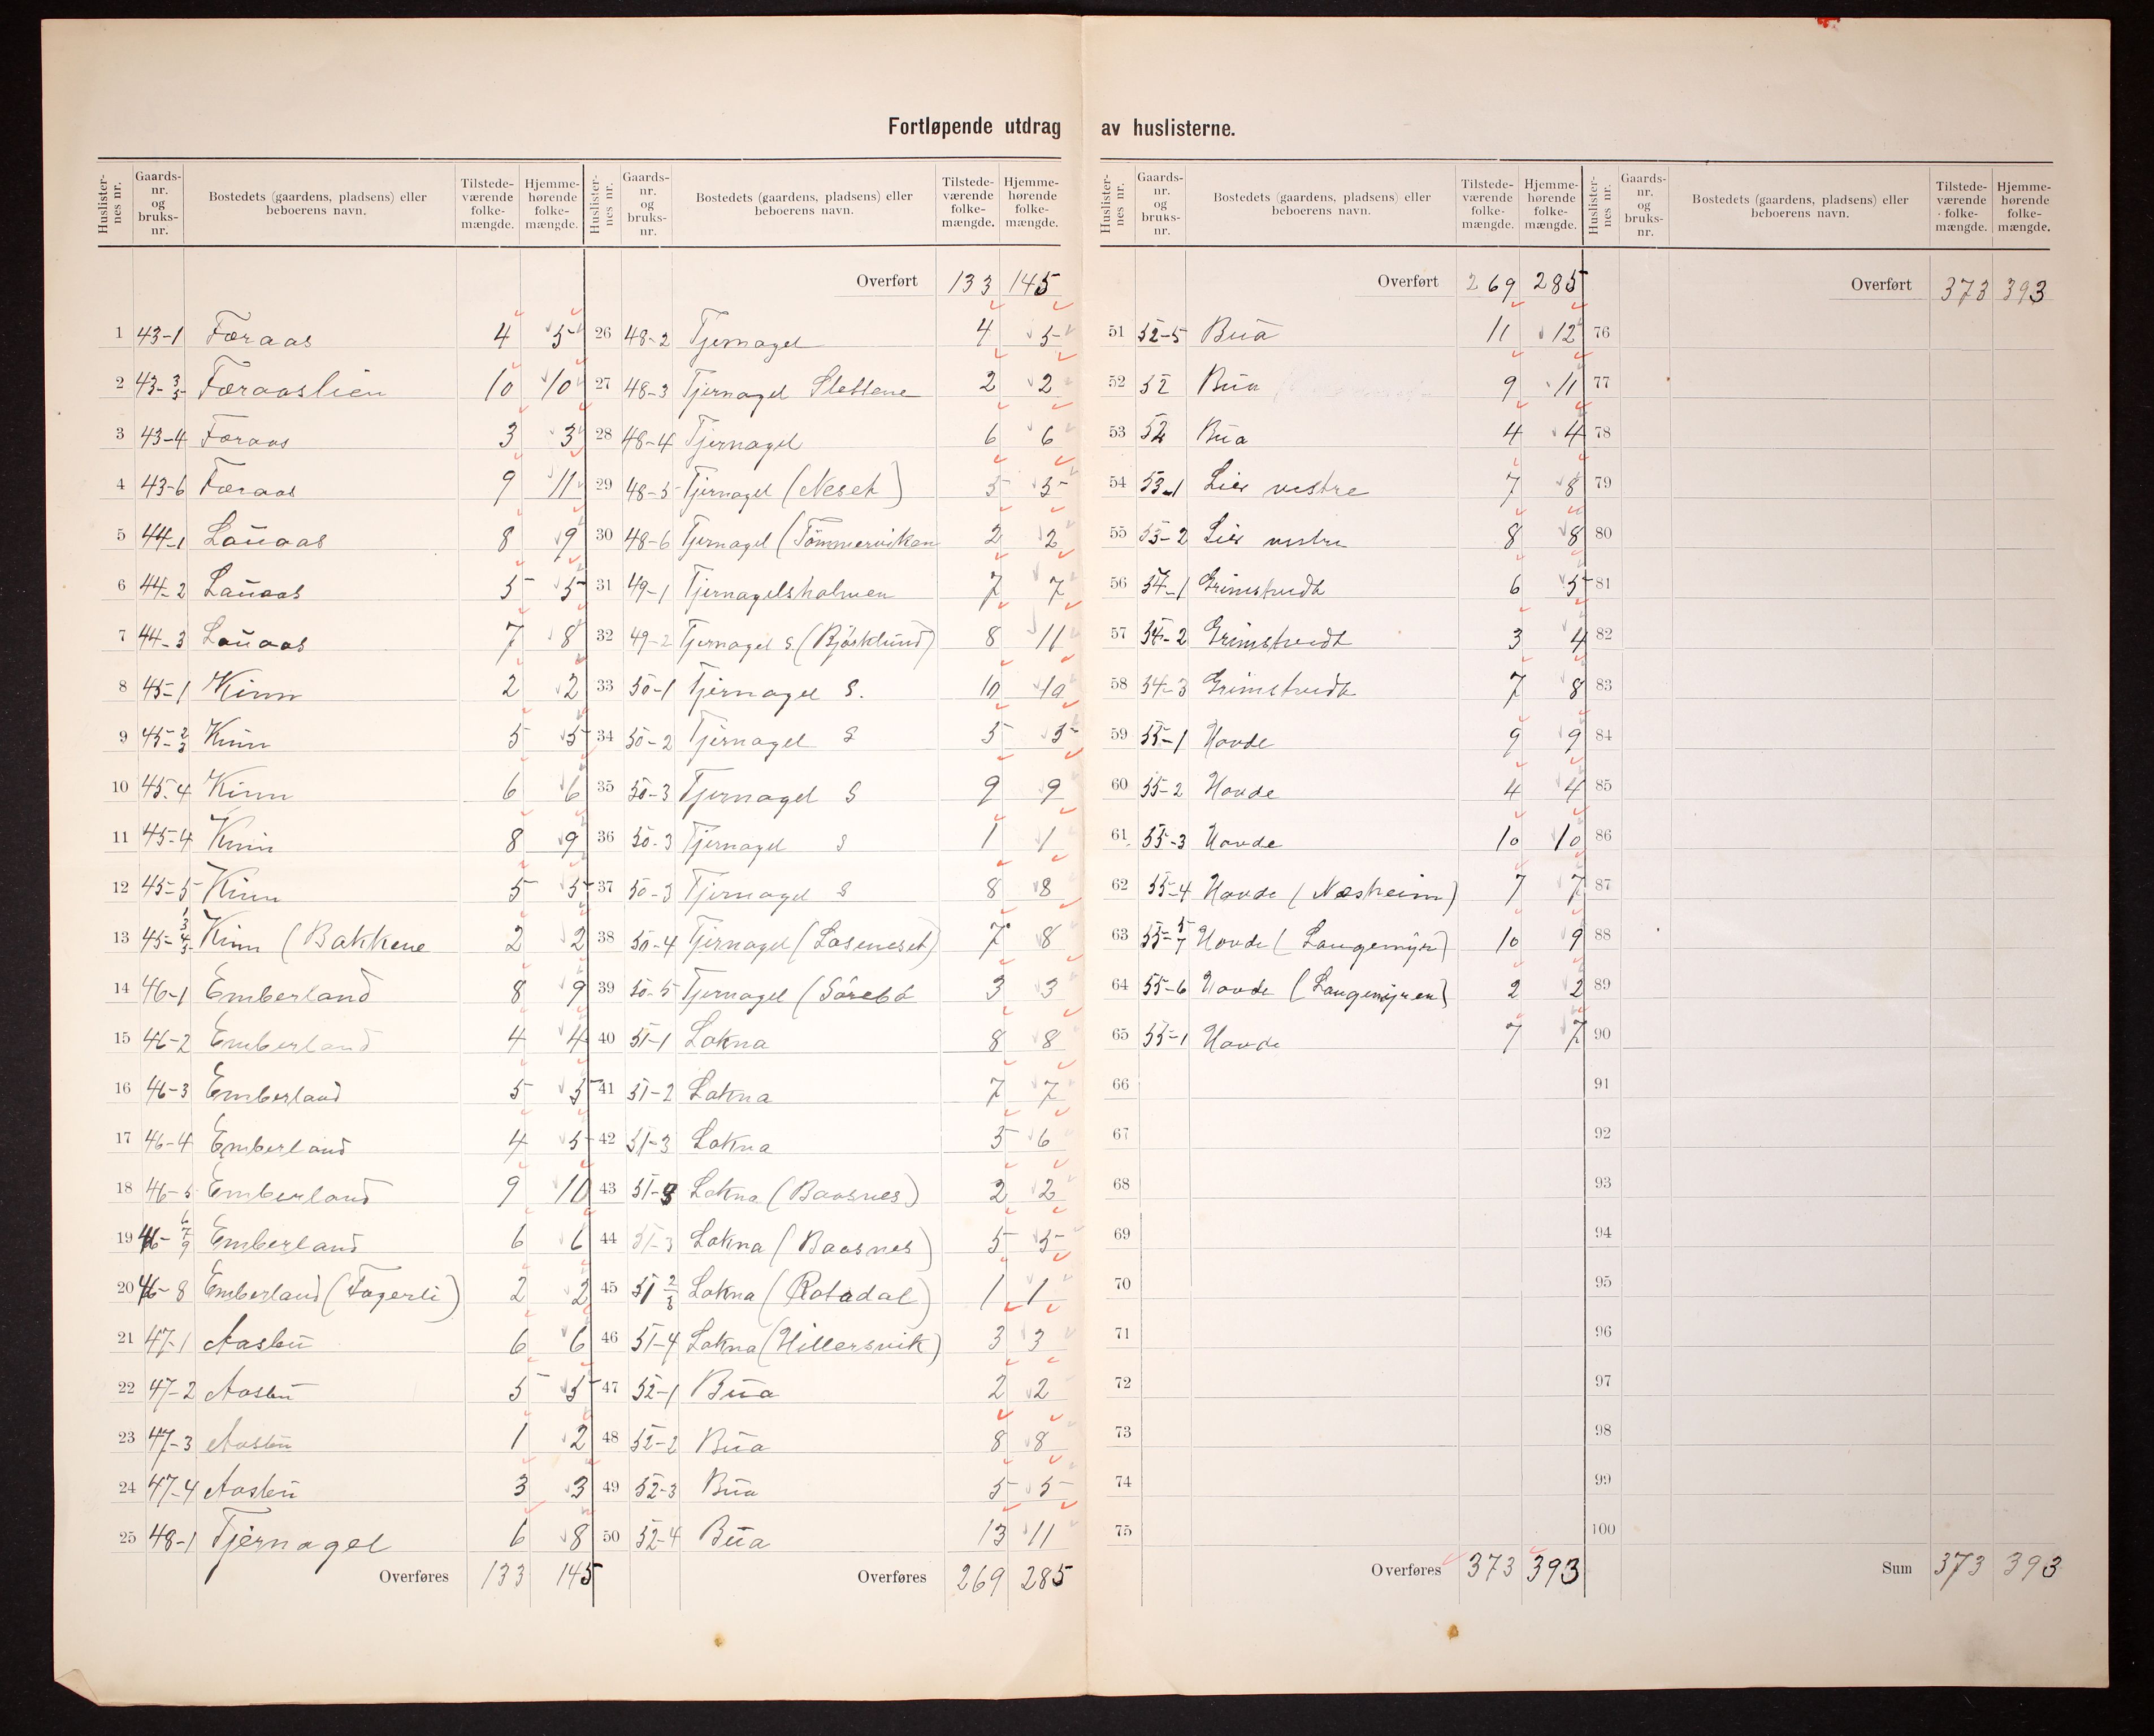 Fortløpende utdrag av huslisterne.
Huslister-nes nr. Gaards-nr. og bruks-nr. Bostedets (gaardens, pladsens) eller beboerens navn. Tilstede-værende folke-mængde. Hjemme-hørende folke-mængde.
1 43-1 Føraas 4 5
2 43-3 5 Føraaslien 10 10
3 43-4 Føraas 3 3
4 43-6 Føraas 9 11
5 44-1 Lauaas 8 9
6 44-2 Lauaas 5 5
7 44-3 Lauaas 7 8
8 45-1 Kinn 2 2
9 45-2 3 Kinn 5 5
10 45-4 Kinn 6 6
11 45-4 Kinn 8 9
12 45-5 Kinn 5 5
13 45- Kinn (Bakkene 2 2
14 46-1 Emberland 8 9
15 46-2 Emberland 4 4
16 46-3 Emberland 5 5
17 46-4 Emberland 4 5
18 46-5 Emberland 9 10
19 46-6 7 9 Emberland 6 6
20 46-8 Emberland (Fagerli) 2 2
21 47-1 Aasbü 6 6
22 47-2 Aasbü 5 5
23 47-3 Aasbü 1 2
24 47-4 Aasbü 3 3
25 48-1 Tjernagel 6 8
Overføres 133 145
Huslister-nes nr. Gaards-nr. og bruks-nr. Bostedets (gaardens, pladsens) eller beboerens navn. Tilstede-værende folke-mængde. Hjemme-hørende folke-mængde.
Overført 133 145
26 48-2 Tjernagel 4 5
27 48-3 Tjernagel Slettene 2 2
28 48-4 Tjernagel 6 6
29 48-5 Tjernagel (Neset) 5 5
30 48-6 Tjernagel (Tømmerviken 2 2
31 49-1 Tjernagelsholmen 7 7
32 49-2 Tjernagel S. (Bjørklund) 8 11
33 50-1 Tjernagel S. 10 10
34 50-2 Tjernagel S 5 5
35 50-3 Tjernagel S 9 9
36 50-3 Tjernagel S 1 1
37 50-3 Tjernagel S 8 8
38 50-4 Tjernagel (Loseneset) 7 8
39 50-5 Tjernagel (Sørebø 3 3
40 51-1 Lokna 8 8
41 51-2 Lokna 7 7
42 51-3 Lokna 5 6
43 51-3 Lokna (Baasnes) 2 2
44 51-3 Lokna (Baasnes) 5 5
45 51 2 Lokna (Rotadal) 1 1
46 51-4 Lokna (Hillersvik) 3 3
47 52-1 Büa 2 2
48 52-2 Büa 8 8
49 52-3 Büa 5 5
50 52-4 Büa 13 11
Overføres 269 285
Huslister-nes nr. Gaards-nr. og bruks-nr. Bostedets (gaardens, pladsens) eller beboerens navn. Tilstede-værende folke-mængde. Hjemme-hørende folke-mængde.
Overført 269 285
51 52-5 Büa 11 12
52 52 Büa 9 11
53 52 Büa 4 4
54 53-1 Lier vestre 7 8
55 53-2 Lier vestre 8 8
56 54-1 Grimstvedt 6 5
57 54-2 Grimstvedt 3 4
58 54-3 Grimstvedt 7 8
59 55-1 Hovde 9 9
60 55-2 Hovde 4 4
61 55-3 Hovde 10 10
62 55-4 Hovde (Næsheim) 7 7
63 55-5 7 Hovde (Langemyr) 10 9
64 55-6 Hovde (Langemyren) 2 2
65 55-1 Hovde 7 7
66
67
68
69
70
71
72
73
74
75
Overføres 373 393
Huslister-nes nr. Gaards-nr. og bruks-nr. Bostedets (gaardens, pladsens) eller beboerens navn. Tilstede-værende folke-mængde. Hjemme-hørende folke-mængde.
Overført 373 393
76
77
78
79
80
81
82
83
84
85
86
87
88
89
90
91
92
93
94
95
96
97
98
99
100
Sum 373 393